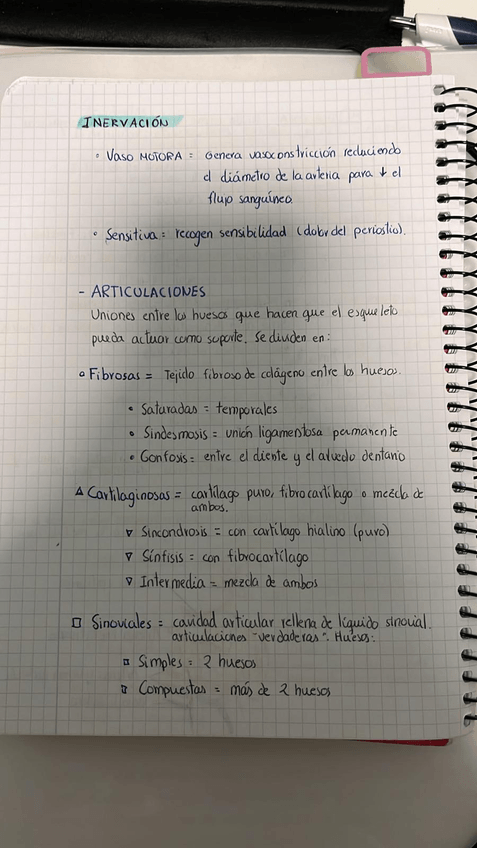 INERVACIÓN
◦ VASO MOTORA = Genera vasoconstricción reduciendo
el diámetro de la arteria para ↓ el
flujo sanguíneo.
◦ Sensitiva = recogen sensibilidad (dolor del periostio).
- ARTICULACIONES
Uniones entre los huesos que hacen que el esqueleto
pueda actuar como soporte. Se dividen en:
o Fibrosas = Tejido fibroso de colágeno entre los huesos.
• Saturadas = temporales
• Sindesmosis = unión ligamentosa permanente
• Gonfosis = entre el diente y el alveolo dentario
△ Cartilaginosas = cartílago puro, fibrocartílago o mezcla de
ambos.
▽ Sincondrosis = con cartílago hialino (puro)
▽ Sínfisis = con fibrocartílago
▽ Intermedia = mezcla de ambos
□ Sinoviales = cavidad articular rellena de líquido sinovial.
articulaciones "verdaderas". Huesos:
□ Simples = 2 huesos
□ Compuestas = más de 2 huesos